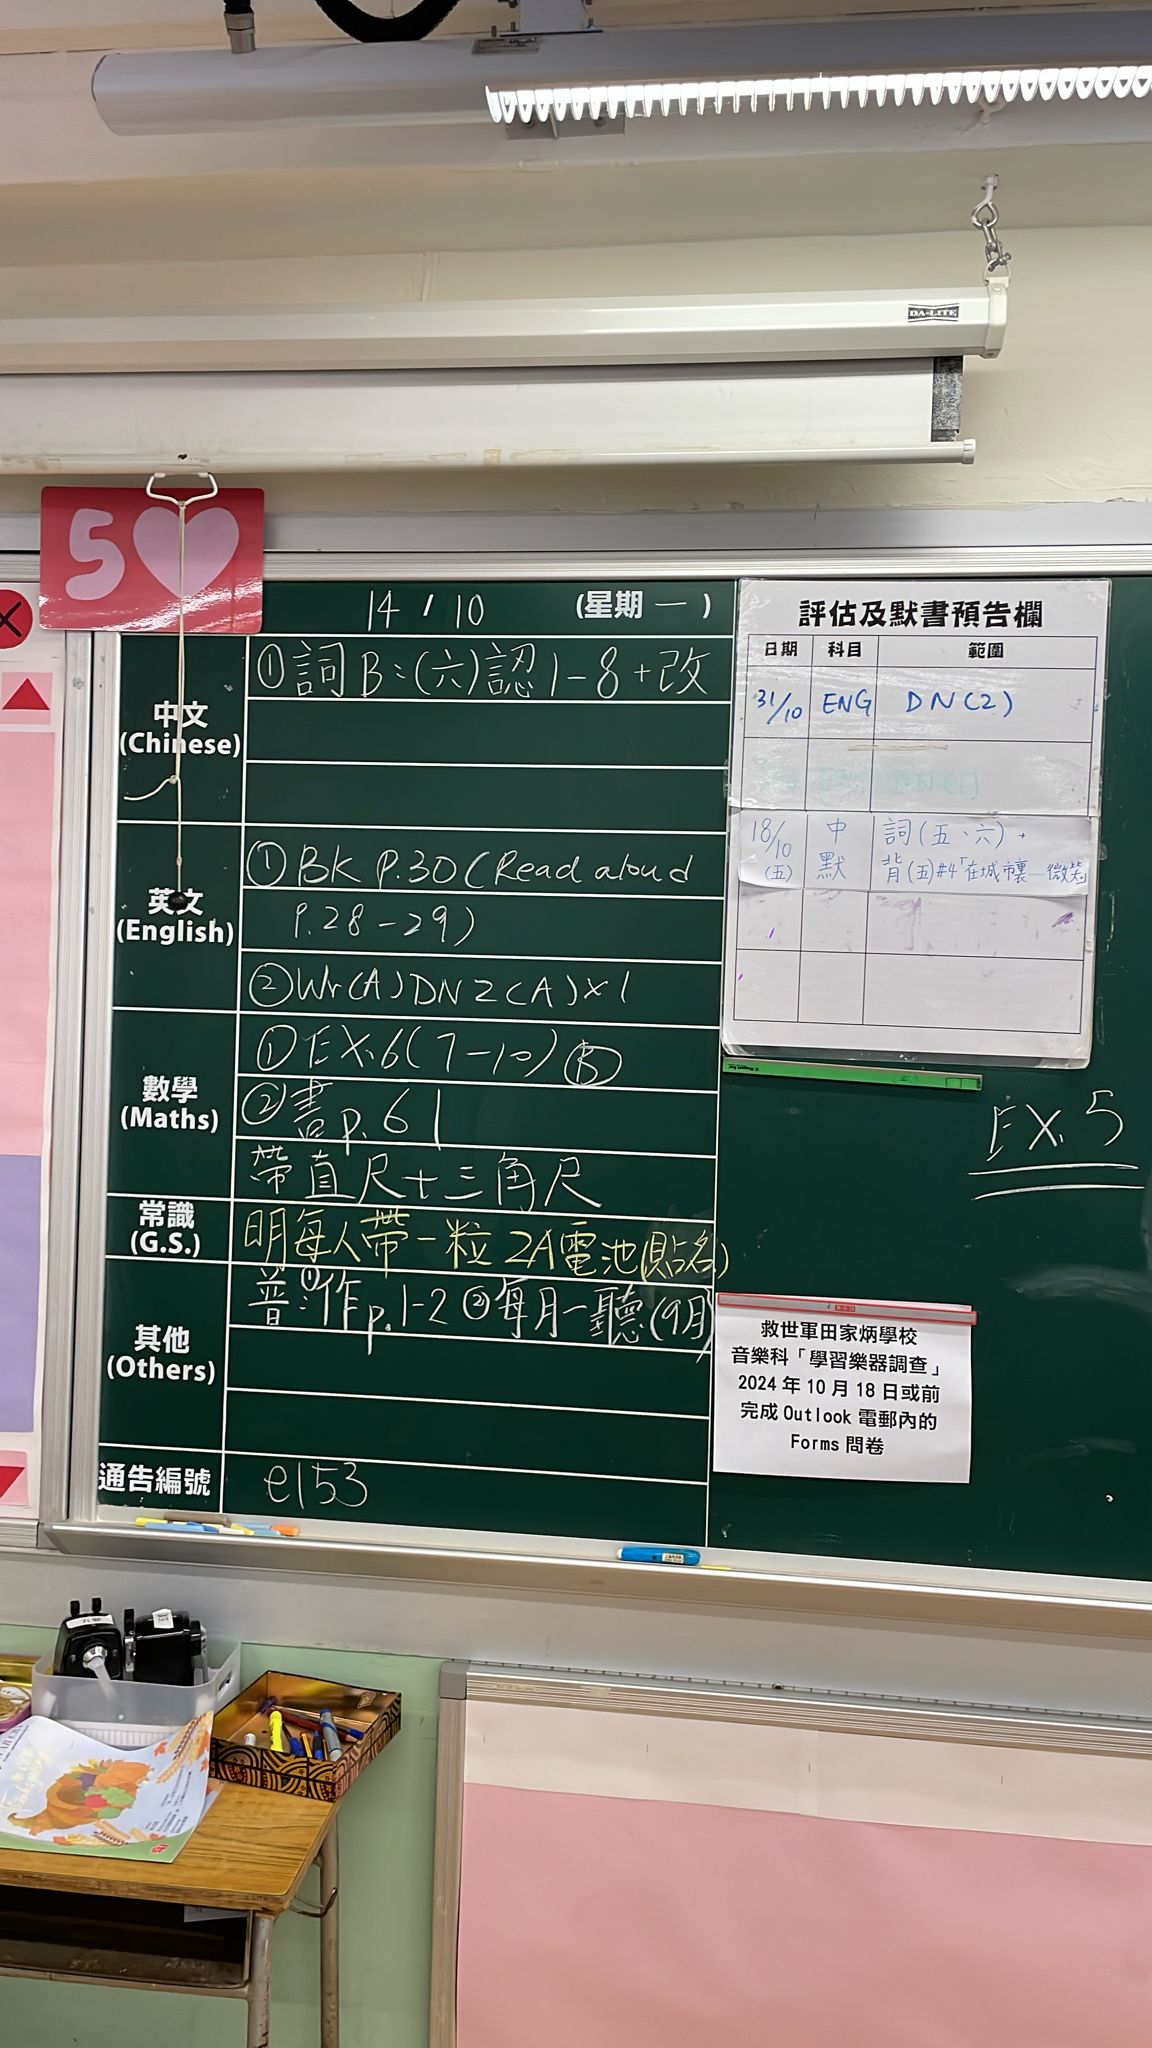 DA-LITE
5
14 / 10 (星期 一 )
中文
(Chinese)
①詞B:(六)認1-8+改
英文
(English)
①BK P.30 (Read aloud
P.28-29)
②Wr(A) DN2(A)×1
數學
(Maths)
①EX.6(7-10) Ⓑ
②書p.61
帶直尺+三角尺
常識
(G.S.)
明每人帶一粒2A電池(貼名)
其他
(Others)
普:①作p.1-2 ②每月一聽(9月)
通告編號
e153
評估及默書預告欄
日期 科目 範圍
31/10 ENG DN(2)
DN(1)
18/10 (五) 中默 詞(五、六)、
背(五)#4「在城市裏…微笑」
EX.5
救世軍田家炳學校
音樂科「學習樂器調查」
2024年10月18日或前
完成Outlook電郵內的
Forms問卷